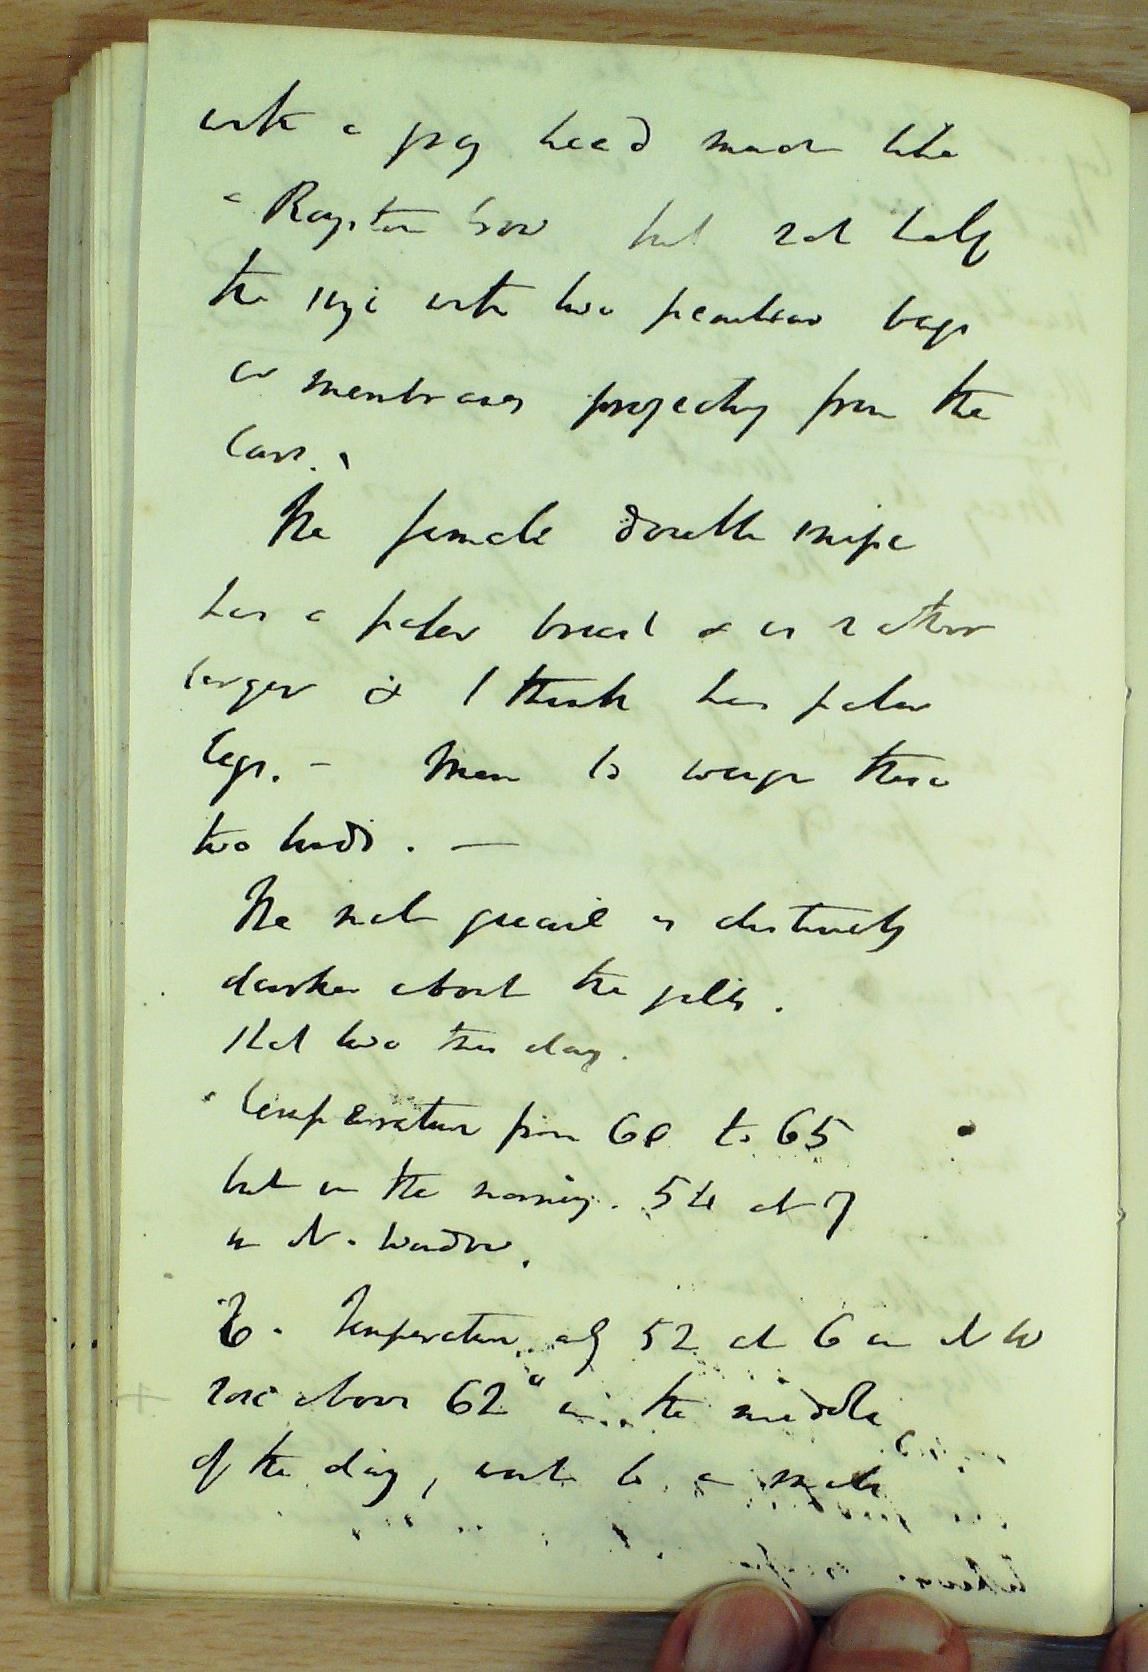 with a grey head much like
a Royston Crow but not half
the size with two peculiar bags
or membranes projecting from the
ears.
The female double snipe
has a paler breast & is rather
larger & I think has paler
legs. - Mem to weigh these
two birds. —
The male quail is distinctly
darker about the gills.
Shot two this day.
Temperature from 60 to 65
but in the morning. 54 at 7
in N. Window.
6. Temperature of 52 at 6 in N W
rose above 62° in the middle
of the day, went to a